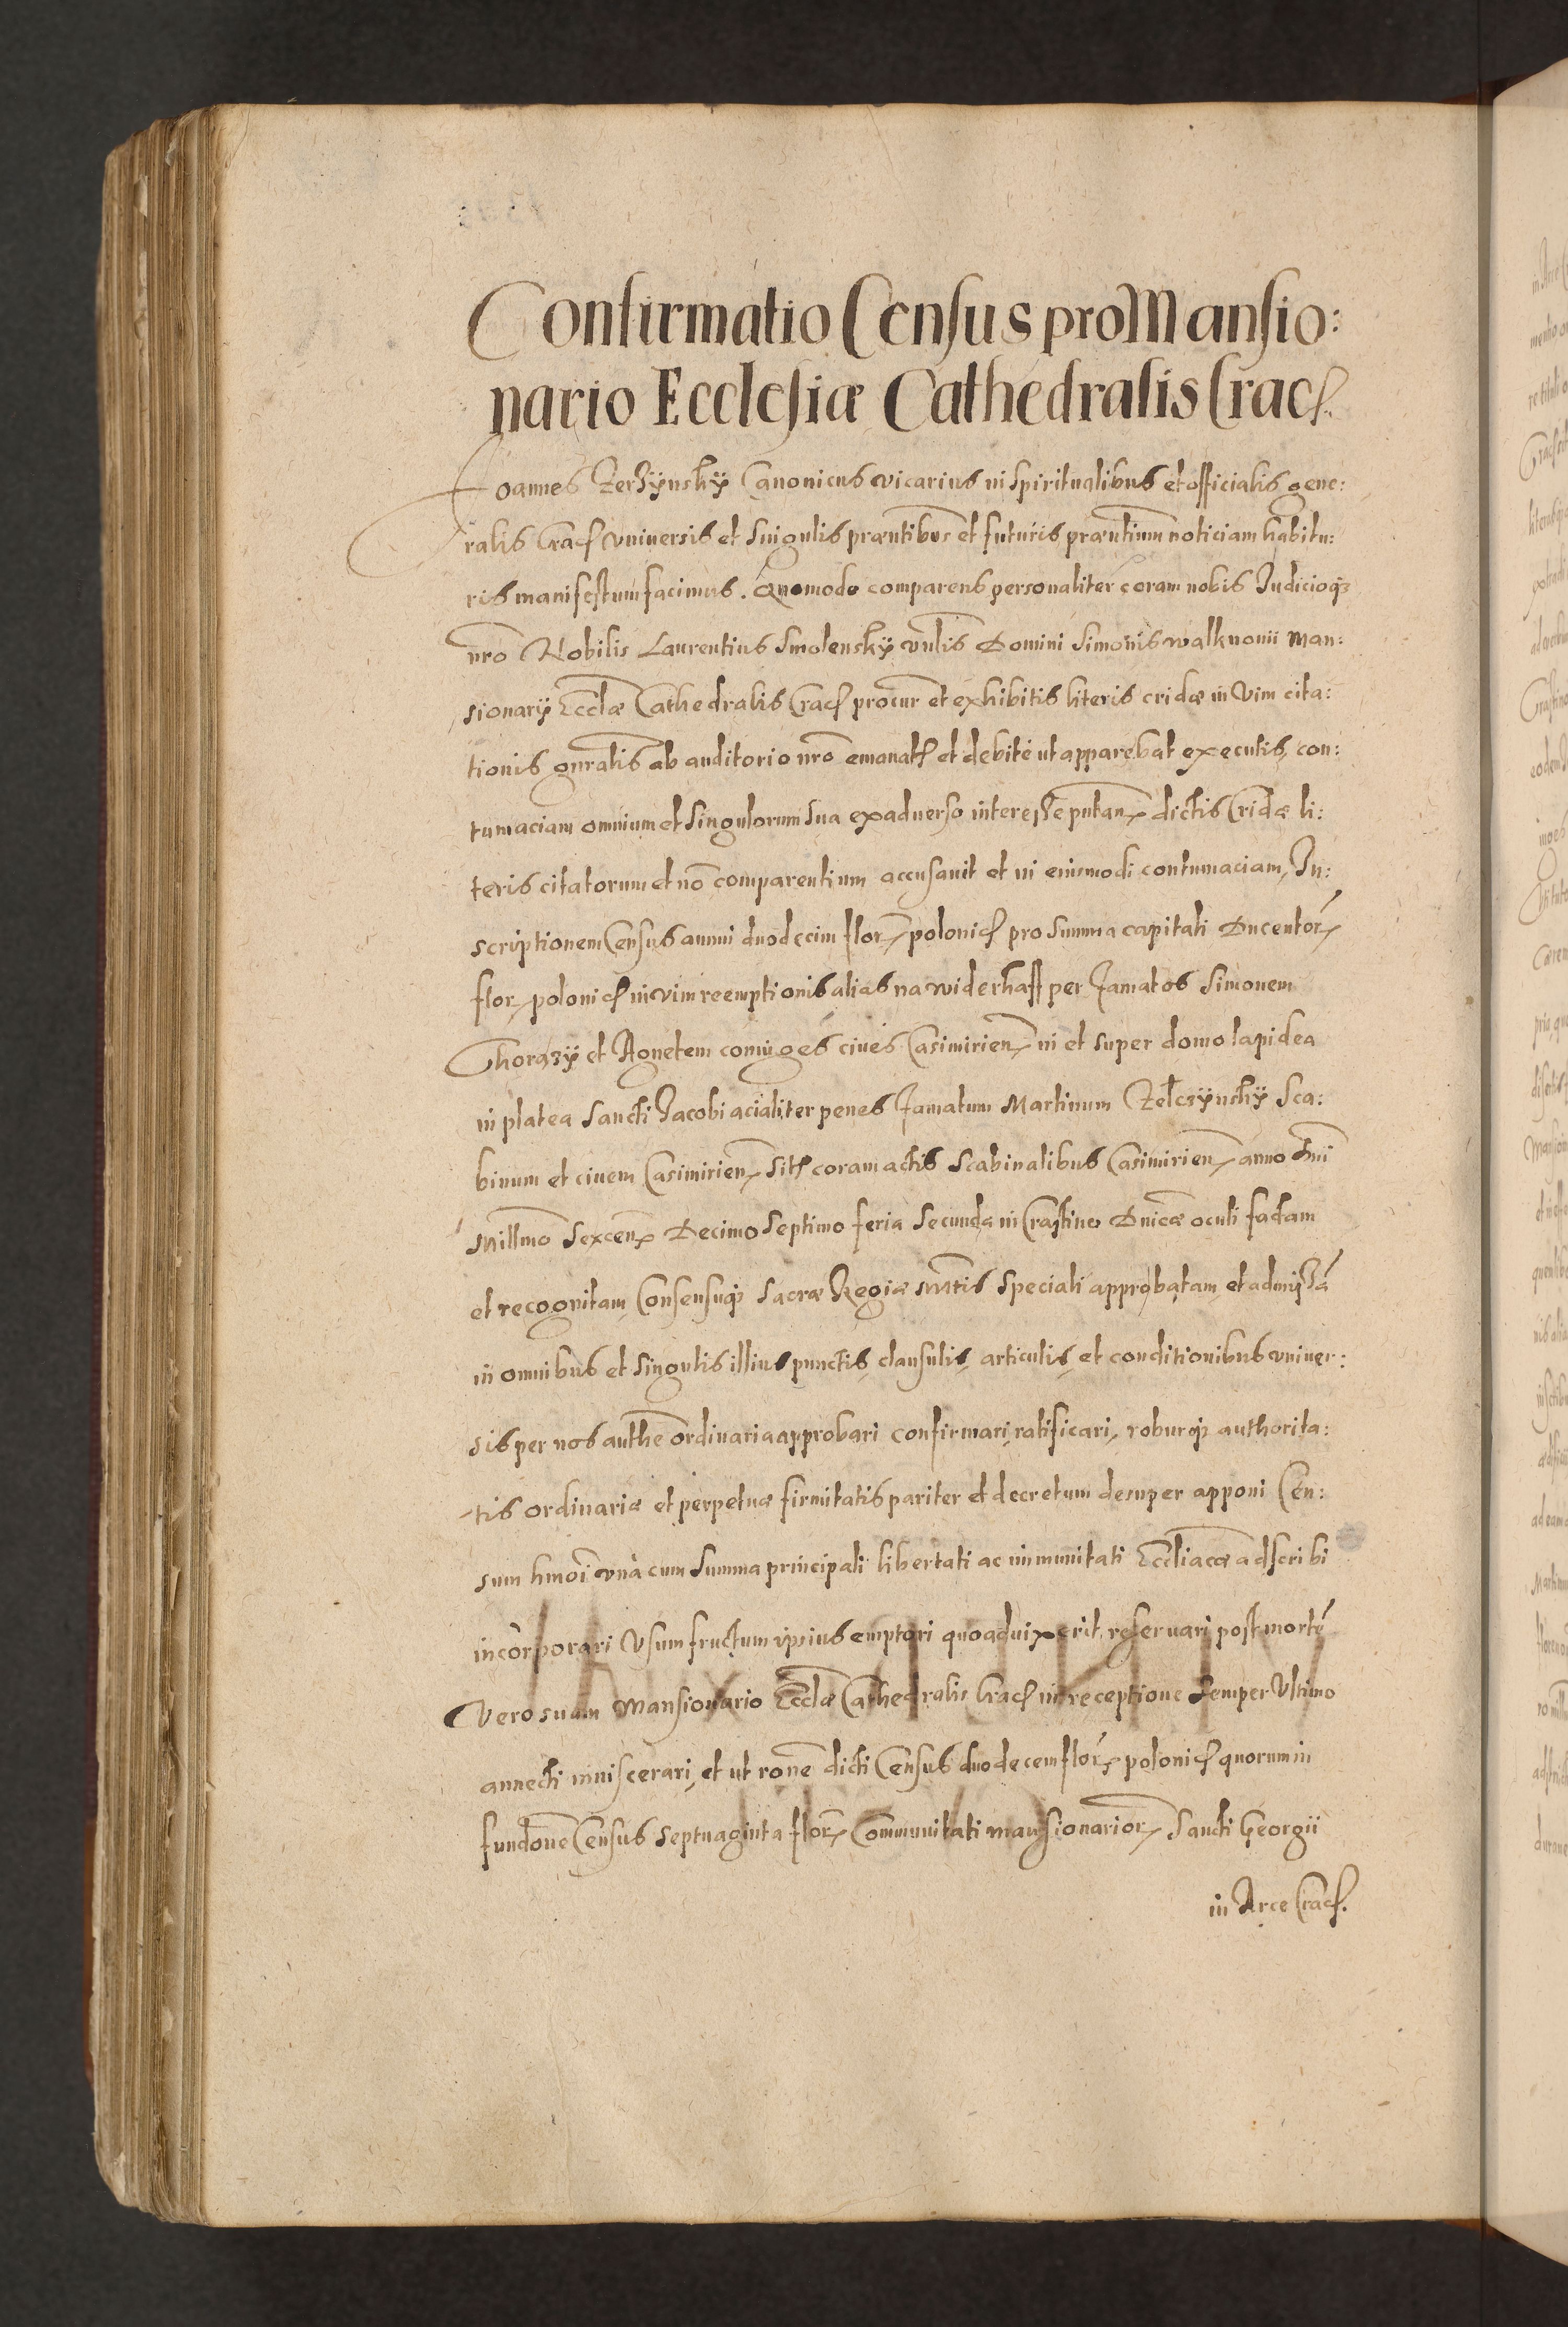 Confirmatio Census pro Mansio:
nario Ecclesiæ Cathedralis Crac.
Joannes Zerzÿnskÿ Canonicus vicarius in spiritualibus et officialis gene:
ralis Crac vniuersis et singulis præntibus et futuris præntium noticiam habitu:
ris manifestum facimus. Quomodo comparens personaliter coram nobis Judicioq3
nro Nobilis Laurentius Smolenskÿ vnlis Domini Simonis walknouii Man:
sionarÿ Ecclæ Cathedralis Crac procur et exhibitis literis cridæ in vim cita:
tionis gnralis ab auditorio nro emanat et debite ut apparebat executis, con:
tumaciam omnium et singulorum sua ex aduerso interesse putan dictis Cridæ li:
teris citatorum et no comparentium accusauit et in eiusmodi contumaciam, In:
scriptionem Census annui duodecim flor polonic pro summa capitali Ducentor
flor polonic in vim reemptionis alias na widerkaff per famatos Simonem
Chorazÿ et Agnetem coniuges ciues Casimirien in et super domo lapidea
in platea Sancti Jacobi acialiter penes famatum Martinum Zelczÿnskÿ Sca:
binum et ciuem Casimirien sit coram actis scabinalibus Casimirien anno Dni
Millmo Sexcen Decimo Septimo feria Secunda in Crastino Dnicæ oculi factam
et recognitam, Consensuq3 Sacræ Regiæ Mtis speciali approbatam, et admissa
in omnibus et singulis illius punctis, clausulis, articulis, et conditionibus vniuer:
sis per nos authe ordinaria approbari confirmari, ratificari, roburq3 authorita:
tis ordinariæ et perpetuæ firmitatis pariter et decretum desuper apponi Cen:
sum hmoi vnà cum summa principali libertati ac immunitati Eccliacæ adscribi
incorporari Vsumfructum ipsius emptori quoad vixerit reseruari post morte
Vero suam Mansionario Eccla Cathedralis Crac in receptione semper Vltimo
annecti inuiscerari, et ut rone dicti Census duodecem flor polonic quorum in
fundone Census septuaginta flor Communitati mansionarior Sancti Georgii
in Arce Crac.